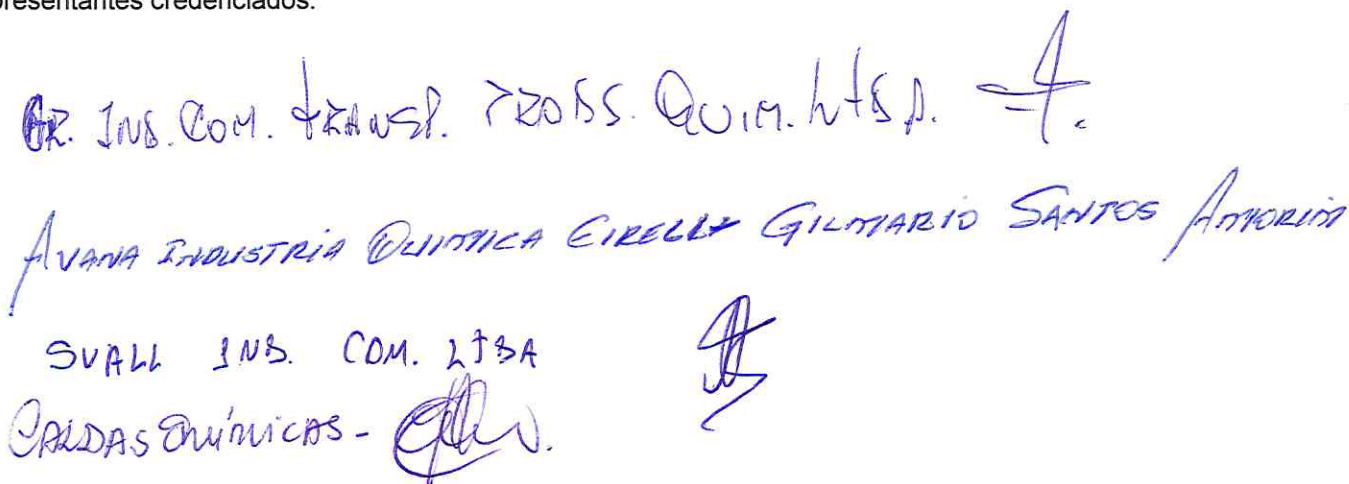 presentantes credenciados.
GR. IND. COM. TRANSP. PRODS. QUIM. LTDA.
AVANA INDUSTRIA QUIMICA EIRELLY GILMARIO SANTOS AMORIM
SVALL IND. COM. LTDA
CALDAS QUÍMICAS -